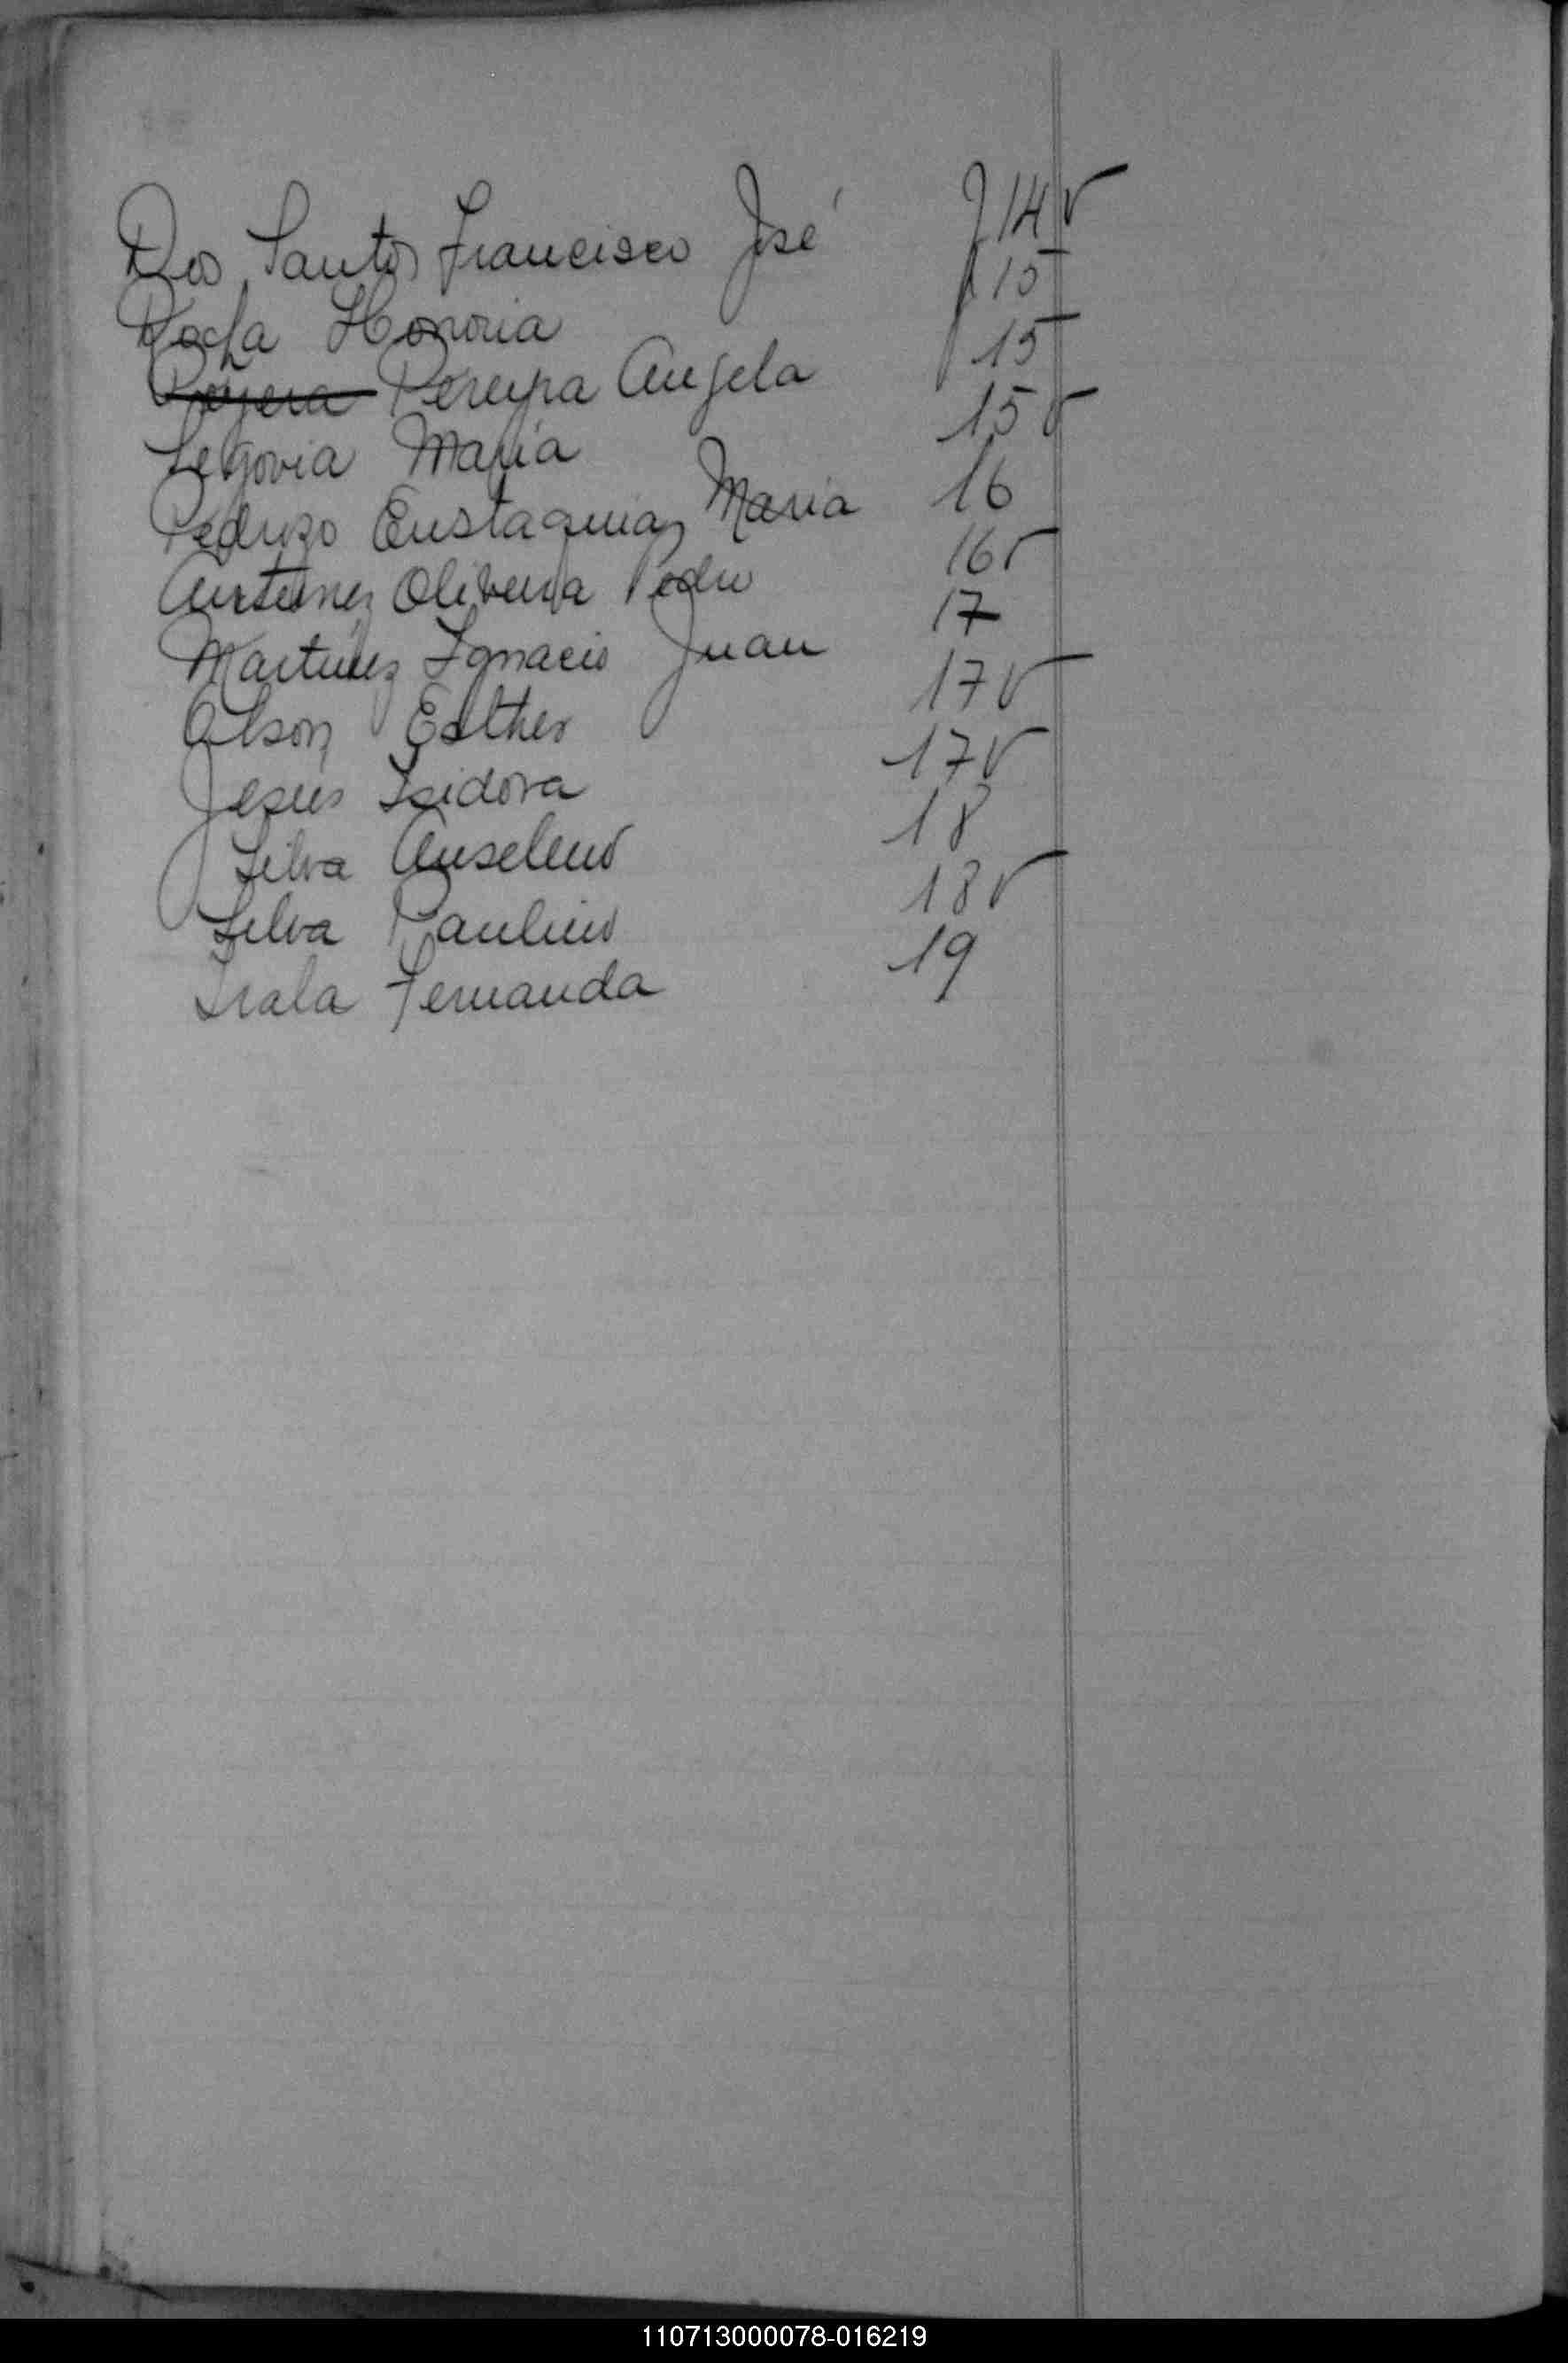 Dos Santos Francisco José f 14v
Honoria f 15
Pereyra Angela f 15
Segovia Maria 15v
Pedrozo Eustaquia Maria 16
Antunez Olivera Pedro 16v
Martinez Ignacio Juan 17
Esther 17v
Jesús Isidora 17v
Silva Anselmo 18
Silva Paulino 18v
Irala Fernanda 19
110713000078-016219